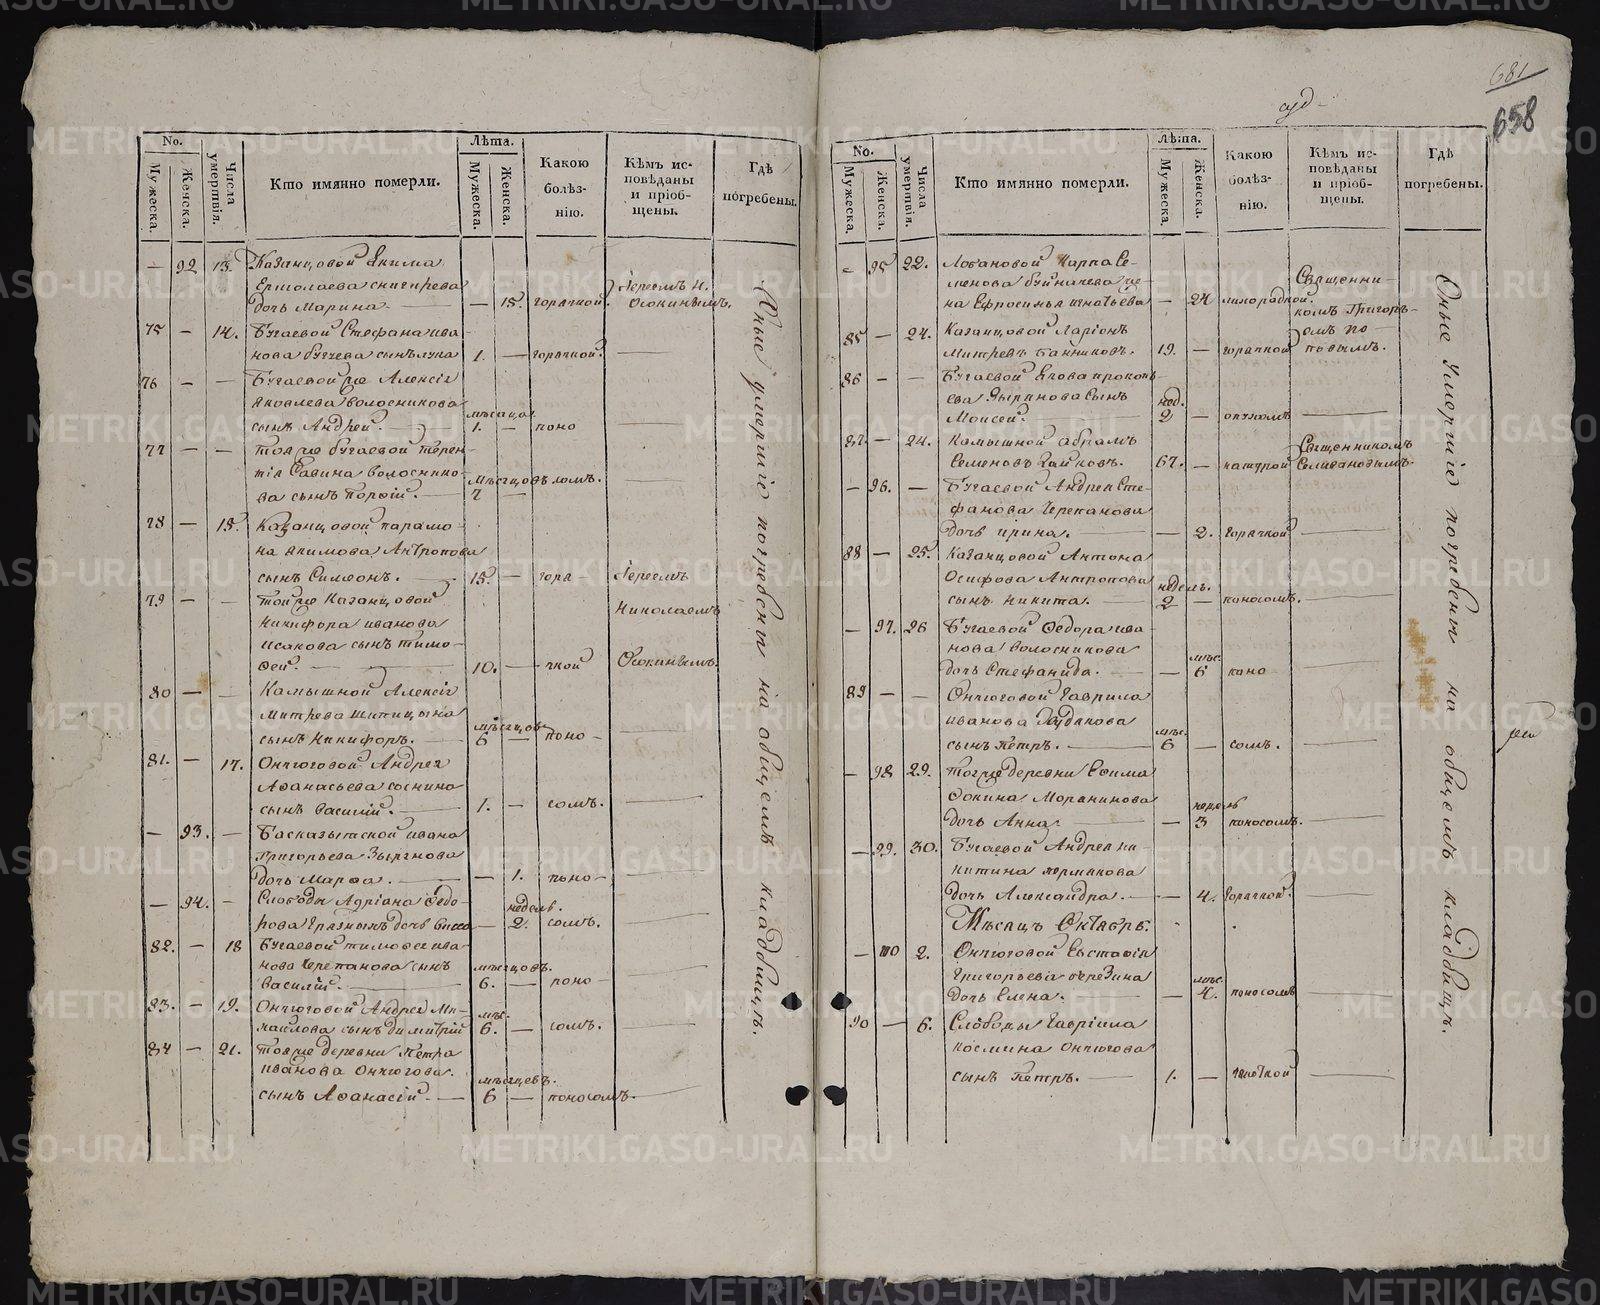 681
658
No.
Мужеска.
Женска.
Числа умертвія.
Кто имянно померли.
Лѣта.
Мужеска.
Женска.
Какою болѣз-
нію.
Кѣмъ ис-
повѣданы
и пріоб-
щены.
Гдѣ
погребены.
— 92 13. Казанцовой Екима
Ермолаева снигирева
дочь Марина. — 15. горячкой. Іереемъ Н. Осокинымъ.
75 — 14. Бугаевой Стефана ива
нова бугаева сынъ лука 1. — горячкой. —
76 — — Бугаевой же Алексія
Яковлева волосникова
сынъ Андрей. мѣсяца. 1. — поно
77 — — Тояже бугаевой терен
тія Савина волоснико-
ва сынъ порфій. мѣсяцовъ 7 — сомъ. —
78 — 15. Казанцовой парамо-
на Якимова Антропова
сынъ Симеонъ. 15. — горя Іереемъ
79 — — тойже Казанцовой Николаемъ
Никифора иванова
исакова сынъ тимо-
фей. — 10. — чкой Осокинымъ.
80 — — Камышной Алексія
Митрева шипицына
сынъ Никифоръ. мѣсяцовъ 6 — поно-
81. — 17. Ончюговой Андрея
Афанасьева соснина
сынъ василій. 1. — сомъ. —
— 93. — Басказыкской ивана
Григорьева Зырянова
дочь Марфа. — 1. поно-
— 94. — Слободы Адріана Федо-
рова Грязныхъ дочь — недель. 2. сомъ. —
82. — 18 Бугаевой тимофея ива-
нова черепанова сынъ
василій. мѣсяцовъ. 6. — поно-
83. — 19. Ончюговой Андрея Ми-
хайлова сынъ димитрій мѣс. 6. — сомъ. —
84 — 21. Тояже деревни петра
иванова Ончюгова.
сынъ Афанасій. мѣсяцевъ. 6 — поносомъ. —
Оные умершіе погребены на общемъ кладбищѣ.
No.
Мужеска.
Женска.
Числа умертвія.
Кто имянно померли.
Лѣта.
Мужеска.
Женска.
Какою
болѣз-
нію.
Кѣмъ ис-
повѣданы
и пріоб-
щены.
Гдѣ
погребены.
— 95 22. Лобановой Карпа Се-
менова буйначева же-
на Ефросинья игнатьева — 24 лихорадкой. Священни-
комъ Григорь-
85 — 24. Казанцовой Ларіонъ емъ по-
митревъ банниковъ. 19. — горячкой повымъ.
86 — — Бугаевой Екова прокопь-
ева Зырянова сынъ
Моисей. нед. 2 — опухомъ —
87. — 24. Камышной абрамъ Священникомъ
Семеновъ зайковъ. 67. — натурой Селивановымъ.
— 96. — Бугаевой Андрея Сте-
фанова Черепанова
дочь ирина. — 2. горячкой —
88 — 25. Казанцовой Антона
Осифова Антропова
сынъ никита. недель. 2 — поносомъ. —
— 97. 26 Бугаевой Федора ива
нова волосникова
дочь Стефанида. — мѣс. 6 поно
89 — — Ончюговой Гаврила
иванова Худякова
сынъ петръ. мѣс. 6 — сомъ. —
— 98 29. Тояже деревни Ефима
Фокина Моранинова
дочь Анна. — недель 3 поносомъ. —
— 99. 30. Бугаевой Андрея ни-
китина пермякова
дочь Александра. — 4. горячкой. —
Мѣсяцъ Октябрь.
— 100 2. Ончюговой Евстафія
Григорьева березина
дочь Елена. — мѣс. 4. поносомъ —
90 — 6. Слободы Гавріила
космина Ончюгова
сынъ петръ. — 1. — чахоткой —
Оные умершіе погребены на общемъ кладбищѣ.